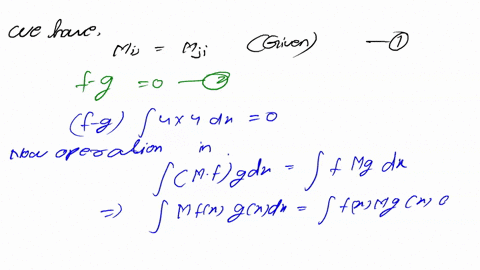 we have,
Mij = Mji (Given) — ①
f-g = 0 — ②
(f-g) ∫ 4 x 4 dx = 0
Now operation in.
∫ (M.f) g dx = ∫ f Mg dx
⇒ ∫ M f(x) g(x) dx = ∫ f(x) M g (x) 0